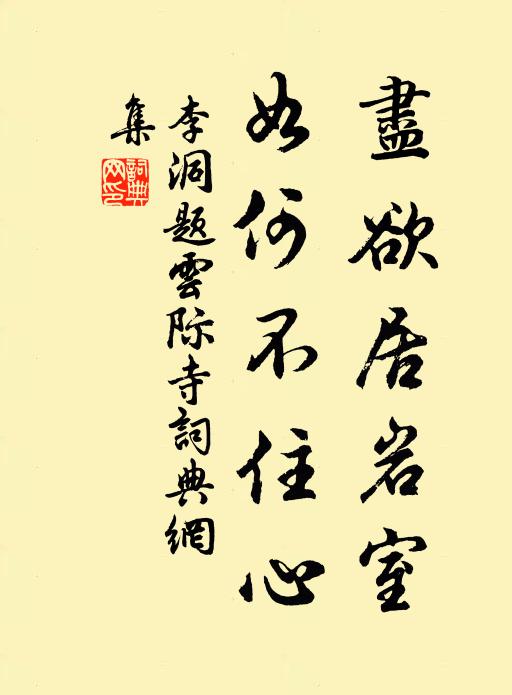 盡欲居岩室
如何不住心
李洞題雲际寺詞典網
集
詞典
网印